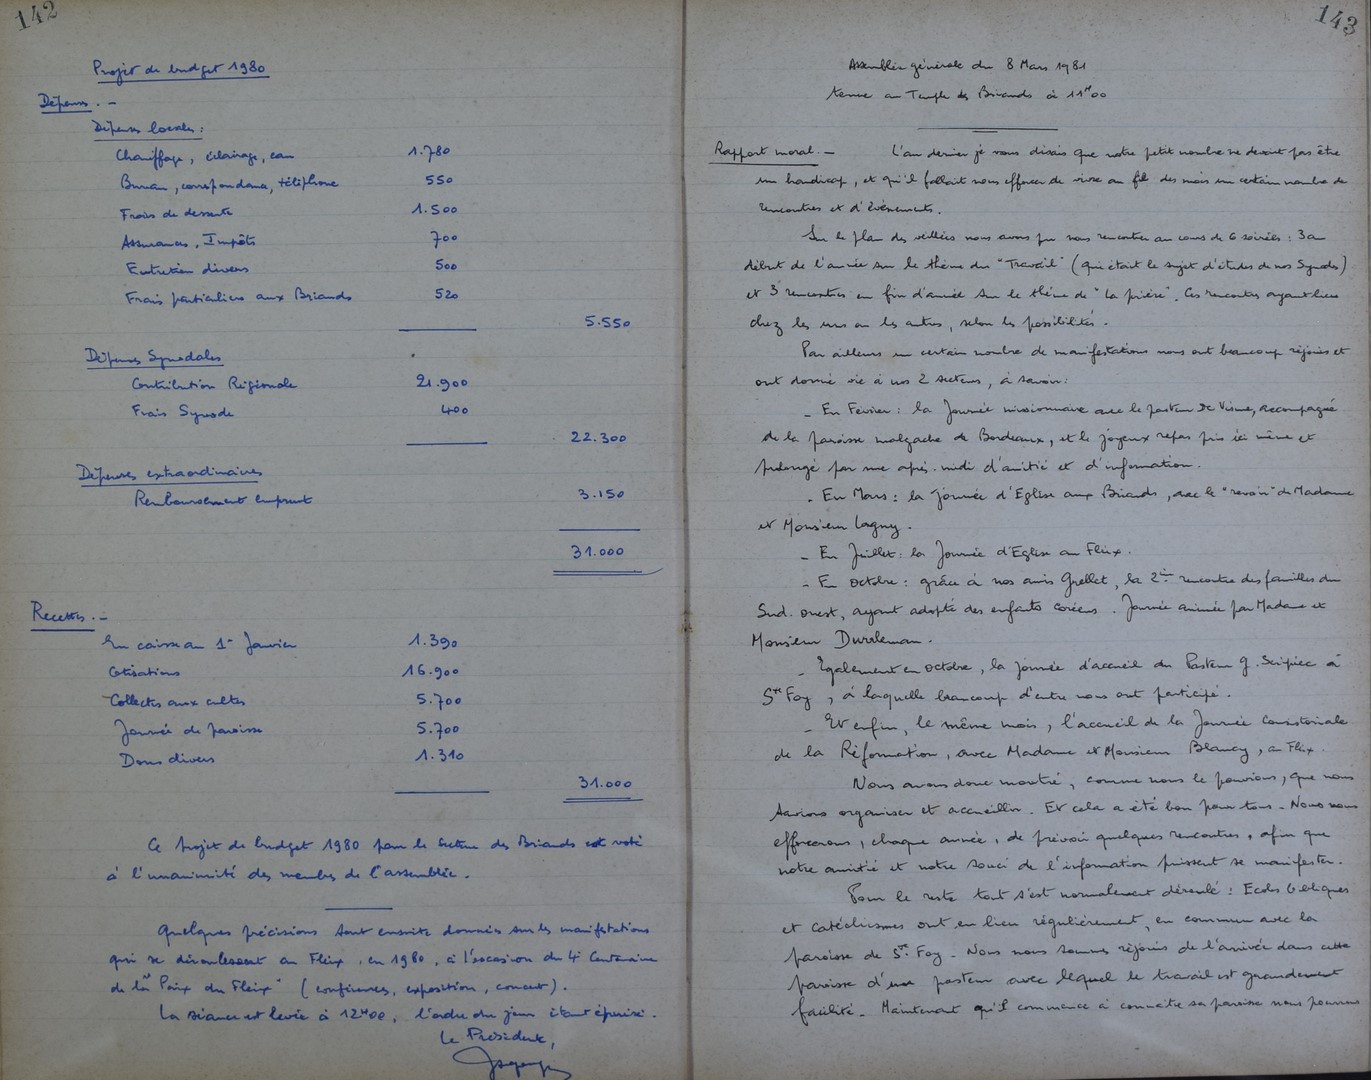 142
Projet de budget 1980
Dépenses. -
Dépenses locales :
Chauffage, éclairage, eau 1.780
Bureau, correspondance, téléphone 550
Frais de desserte 1.500
Assurances, Impôts 700
Entretien divers 500
Frais particuliers aux Briands 520
5.550
Dépenses Synodales
Contribution Régionale 21.900
Frais Synode 400
22.300
Dépenses extraordinaires
Remboursement emprunt 3.150
31.000
Recettes. -
En caisse au 1er Janvier 1.390
Cotisations 16.900
Collectes aux cultes 5.700
Journée de paroisse 5.700
Dons divers 1.310
31.000
Ce projet de budget 1980 pour le secteur des Briands est voté
à l'unanimité des membres de l'assemblée.
Quelques précisions sont ensuite données sur les manifestations
qui se dérouleront au Fleix, en 1980, à l'occasion du 4e Centenaire
de la "Paix du Fleix" (conférences, exposition, concert).
La séance est levée à 12H00, l'ordre du jour étant épuisé.
Le Président,
143
Assemblée générale du 8 Mars 1981
tenue au Temple des Briands à 11H00
Rapport moral. - L'an dernier je vous disais que notre petit nombre ne devait pas être
un handicap, et qu'il fallait nous efforcer de vivre au fil des mois un certain nombre de
rencontres et d'évènements.
Sur le plan des veillées nous avons pu nous rencontrer au cours de 6 soirées : 3 au
début de l'année sur le thème du "Travail" (qui était le sujet d'études de nos Synodes)
et 3 rencontres en fin d'année sur le thème de "la prière". Ces rencontres ayant lieu
chez les uns ou les autres, selon les possibilités.
Par ailleurs un certain nombre de manifestations nous ont beaucoup réjouis et
ont donné vie à nos 2 secteurs, à savoir :
- En Février : la Journée missionnaire avec le pasteur De Visme, accompagné
de la paroisse malgache de Bordeaux, et le joyeux repas pris ici même et
prolongé par une après-midi d'amitié et d'information.
- En Mars : la journée d'Eglise aux Briands, avec le "revoir" de Madame
et Monsieur Lagny.
- En Juillet : la Journée d'Eglise au Fleix.
- En octobre : grâce à nos amis Grellet, la 2è rencontre des familles du
Sud-ouest, ayant adopté des enfants coréens. Journée animée par Madame et
Monsieur Durrleman.
- Egalement en octobre, la journée d'accueil du Pasteur G. à
Ste Foy, à laquelle beaucoup d'entre nous ont participé.
- Et enfin, le même mois, l'accueil de la Journée Consistoriale
de la Réformation, avec Madame et Monsieur Blancy, au Fleix.
Nous avons donc montré, comme nous le pouvions, que nous
savions organiser et accueillir. Et cela a été bon pour tous - Nous nous
efforcerons, chaque année, de prévoir quelques rencontres, afin que
notre amitié et notre souci de l'information puissent se manifester.
Pour le reste tout s'est normalement déroulé : Ecoles bibliques
et catéchismes ont eu lieu régulièrement, en commun avec la
paroisse de Ste Foy - Nous nous sommes réjouis de l'arrivée dans cette
paroisse d'un pasteur avec lequel le travail est grandement
facilité - Maintenant qu'il commence à connaître sa paroisse nous pouvons